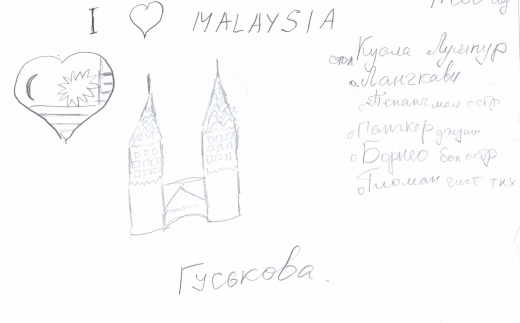 I ♡ MALAYSIA
стол Куала Лумпур
о. Лангкави
о Пенанг мал остр
о Пангкор
о Борнео бол остр
о Тиоман чист тих
Гуськова.